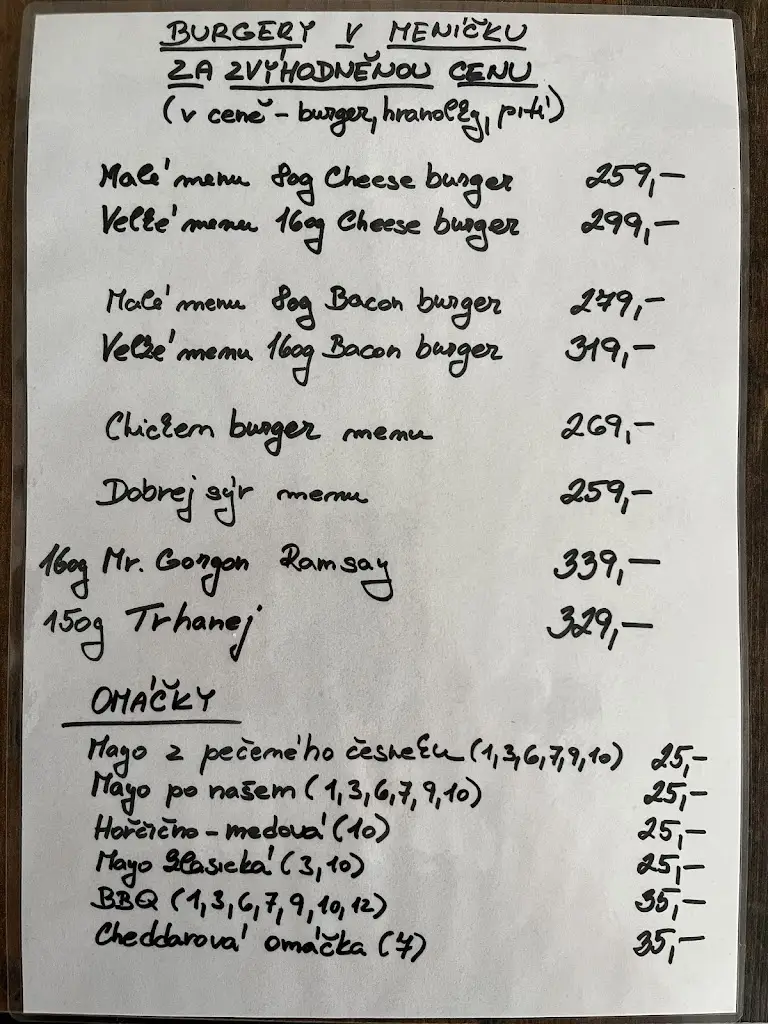 BURGERY V MENÍČKU
ZA ZVÝHODNĚNOU CENU
(v ceně - burger, hranolky, pití)
Malé menu 80g Cheese burger 259,-
Velké menu 160g Cheese burger 299,-
Malé menu 80g Bacon burger 279,-
Velké menu 160g Bacon burger 319,-
Chicken burger menu 269,-
Dobrej sýr menu 259,-
160g Mr. Gorgon Ramsay 339,-
150g Trhanej 329,-
OMÁČKY
Mayo z pečeného česneku (1,3,6,7,9,10) 25,-
Mayo po našem (1,3,6,7,9,10) 25,-
Hořčično-medová (10) 25,-
Mayo klasická (3,10) 25,-
BBQ (1,3,6,7,9,10,12) 35,-
Cheddarová omáčka (7) 35,-